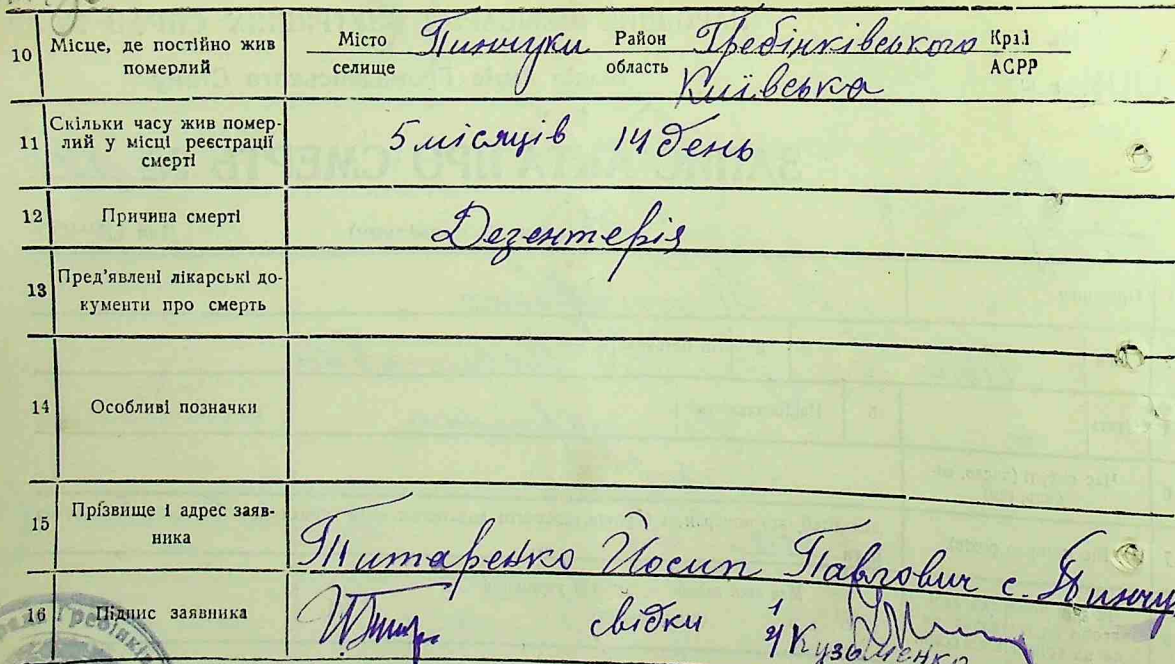 10 Місце, де постійно жив померлий Місто селище Пинчуки Район область Гребінківського Край АСРР
Київська
11 Скільки часу жив помер-
лий у місці реєстрації
смерті 5 місяців 14 день
12 Причина смерті Дезентерія
13 Пред'явлені лікарські до-
кументи про смерть
14 Особливі позначки
15 Прізвище і адрес заяв-
ника Титаренко Йосип Павлович с. Пинчу
16 Підпис заявника свідки 1
2 Кузьменко